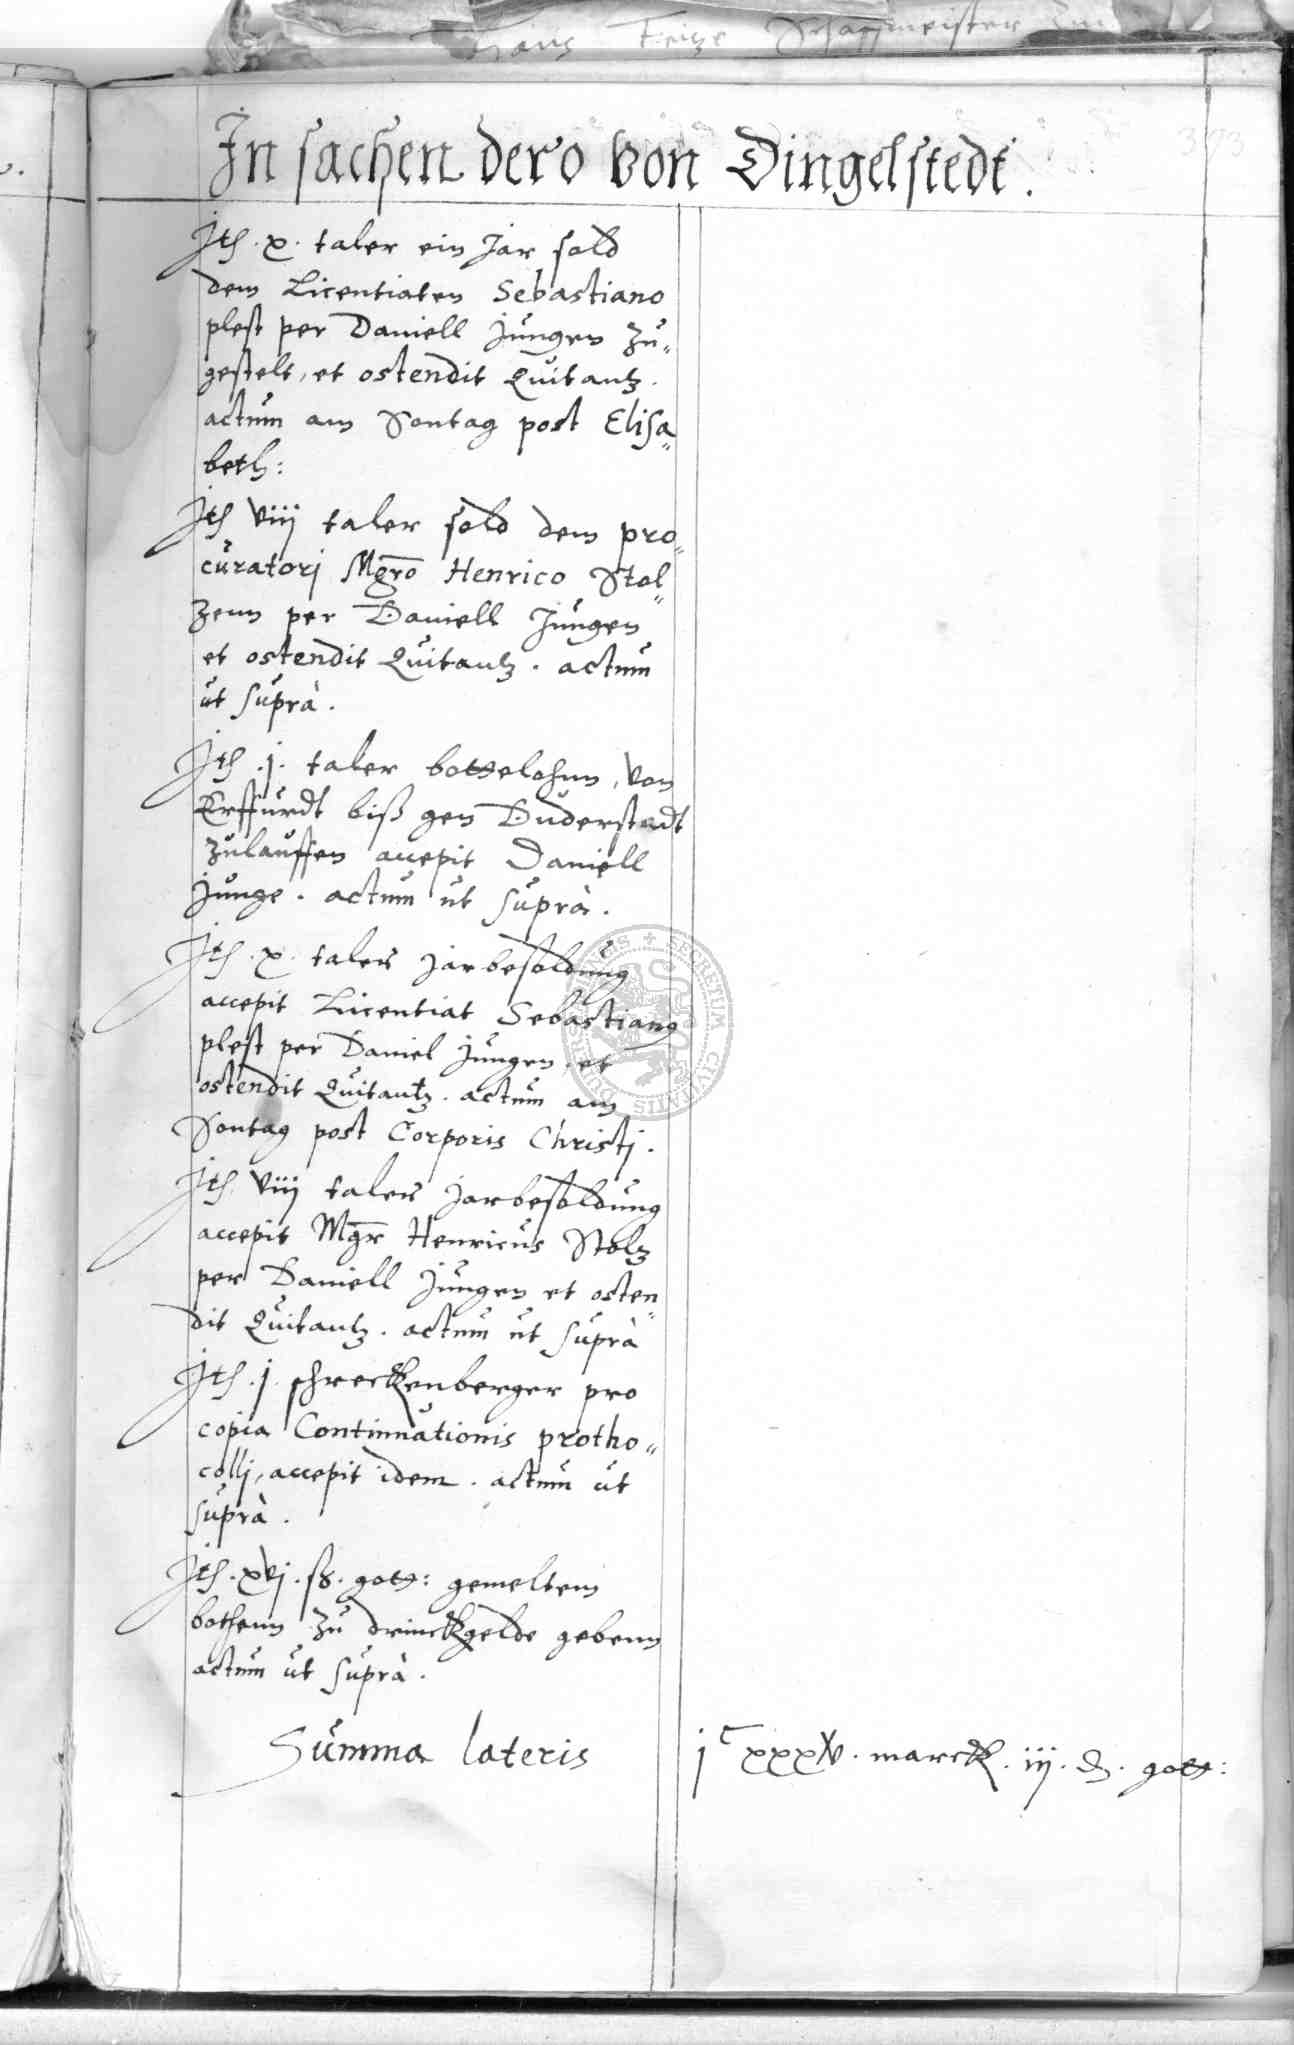 Hans Feige Schatzmeister
373
In sachen dero von Dingelstedt.
Jtē. x. taler ein Jar sold
dem Licentiaten Sebastiano
plest per Daniell Jungen zu„
gestelt, et ostendit Quitantz.
actum am Sontag post Elisa„
beth:
Jtē viij taler sold dem pro„
curatorj Mgrō Henrico Stol„
zenn per Daniell Jungen
et ostendit Quitantz. actum
ut suprà.
Jtē. j. taler bottelohnn, von
Erffurdt biß gen Duderstadt
zulauffen accepit Daniell
Junge. actum ut suprà.
Jtē. x. taler Jarbesoldung
accepit Licentiat Sebastianus
plest per Daniel Jungen. et
ostendit Quitantz. actum am
Sontag post Corporis Christj.
Jtē viij taler Jarbesoldung
accepit Mgr̄ Henricus Stoltz
per Daniell Jungen et osten„
dit Quitantz. actum ut suprà
Jtē. j. schreckenberger pro
copia Continuationis protho„
collj, accepit idem. actum ut
suprà.
Jtē. xvj. ß. gott: gemeltem
bothenn zu drinckgelde gebenn
actum ut suprà.
Summa lateris
j c xxxv. marck. iij. ₰. gott:
SECRETUM CIVITATIS